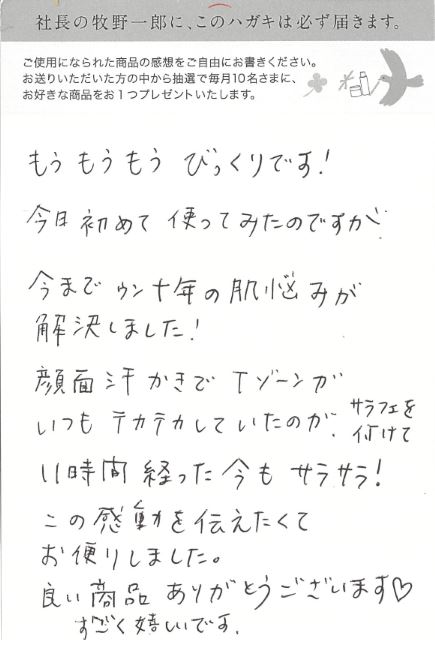 社長の牧野一郎に、このハガキは必ず届きます。
ご使用になられた商品の感想をご自由にお書きください。
お送りいただいた方の中から抽選で毎月10名さまに、
お好きな商品をお1つプレゼントいたします。
もうもうもう びっくりです!
今日初めて使ってみたのですが
今までウン十年の肌悩みが
解決しました!
顔面汗かきでTゾーンが
いつもテカテカしていたのが、サラフェを
付けて
11時間経った今もサラサラ!
この感動を伝えたくて
お便りしました。
良い商品ありがとうございます♡
すごく嬉しいです。